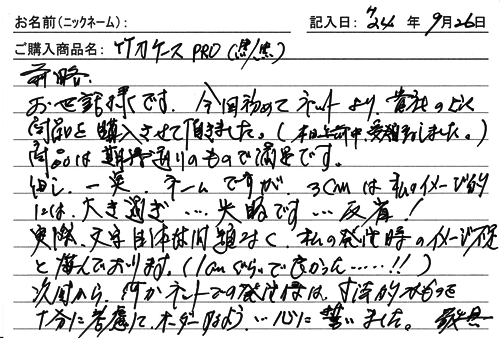 お名前(ニックネーム):
記入日: '24 年 9月26日
ご購入商品名: ケース PRO (黒/黒)
前略
お世話様です。今回初めてネットより、貴社の
商品を購入させて頂きました。(本日午前中、受領致しました。)
商品は期待通りのもので満足です。
但し、一点、ネームですが、3cmは私のイメージ的
には、大き過ぎ…失敗です…反省!
実際、文字自体は問題なく、私の発注時のイメージ
と悔んでおります。(1cmぐらいで良かった……!!)
次回から、何かネットでの発注時は、寸法的なものを
十分に考慮して、オーダーするよう…心に誓いました。 敬具